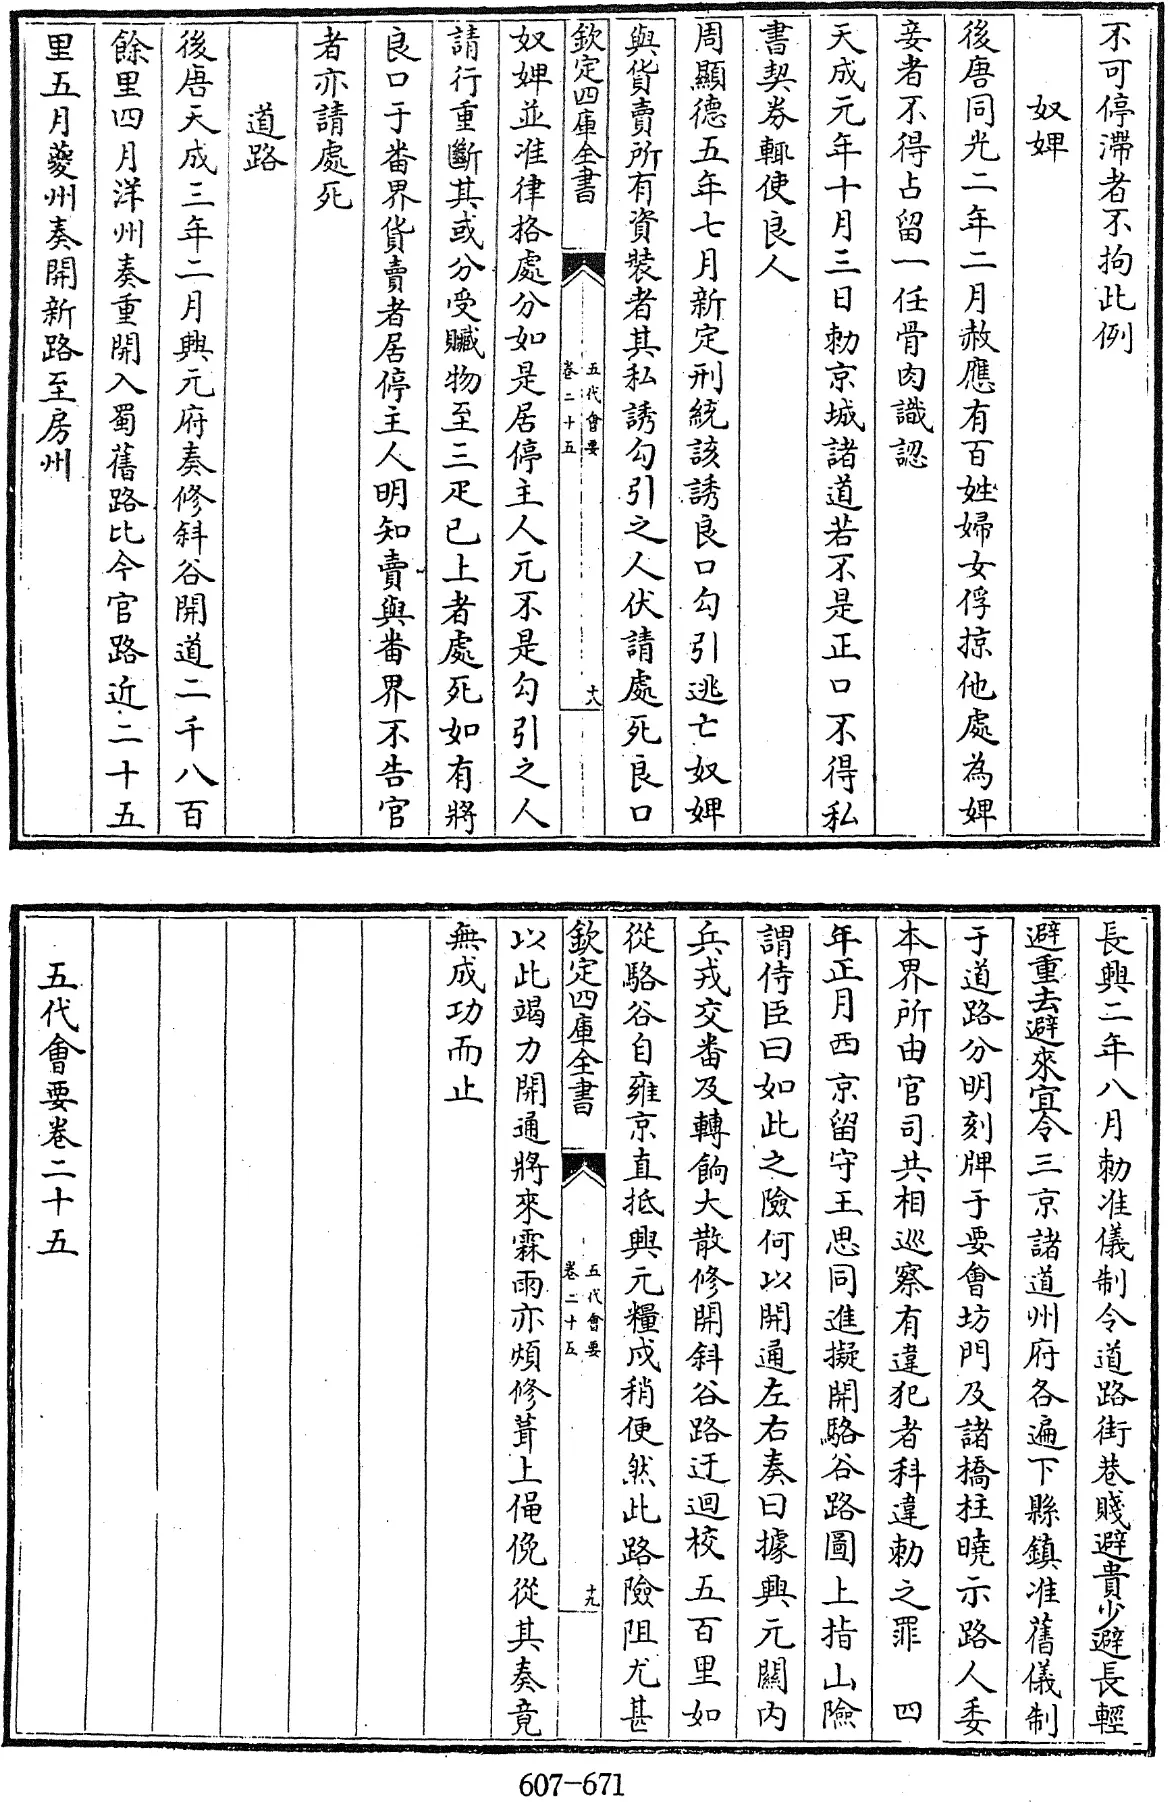 不可停滯者不拘此例
奴婢
後唐同光二年二月赦應有百姓婦女俘掠他處為婢
妾者不得占留一任骨肉識認
天成元年十月三日勅京城諸道若不是正口不得私
書契券輒使良人
周顯德五年七月新定刑統該誘良口勾引逃亡奴婢
與貨賣所有資裝者其私誘勾引之人伏請處死良口
欽定四庫全書
五代會要
卷二十五
十八
奴婢並准律格處分如是居停主人元不是勾引之人
請行重斷其或分受贓物至三疋已上者處死如有將
良口于畨界貨賣者居停主人明知賣與畨界不告官
者亦請處死
道路
後唐天成三年二月興元府奏修斜谷開道二千八百
餘里四月洋州奏重開入蜀舊路比今官路近二十五
里五月夔州奏開新路至房州
長興二年八月勅准儀制令道路街巷賤避貴少避長輕
避重去避來宜令三京諸道州府各遍下縣鎮准舊儀制
于道路分明刻牌于要會坊門及諸橋柱曉示路人委
本界所由官司共相巡察有違犯者科違勅之罪 四
年正月西京留守王思同進擬開駱谷路圖上指山險
謂侍臣曰如此之險何以開通左右奏曰據興元關內
兵戎交畨及轉餉大散修開斜谷路迂迴校五百里如
從駱谷自雍京直抵興元糧戍稍便然此路險阻尤甚
欽定四庫全書
五代會要
卷二十五
十九
以此竭力開通將來霖雨亦煩修葺上僶俛從其奏竟
無成功而止
五代會要卷二十五
607-671